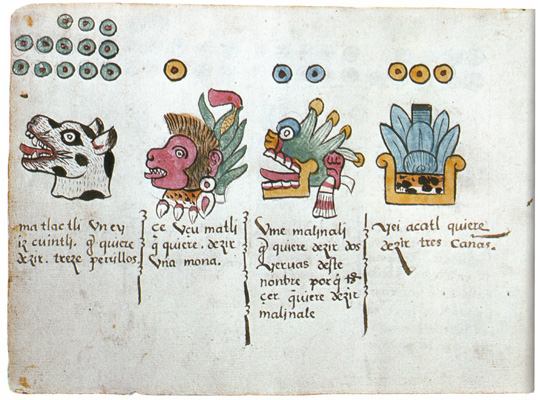 matlactli Uney
izcuintli. q̃ quiere
dezir. treze perillos
ce Uçu matli
q̃ quiere. dezir
Una mona.
Ume malinali
q̃ quiere dezir dos
yeruas deste
nonbre por q̃
çer quiere dezir
malinale
yei acatl quiere
dezir tres Cañas.